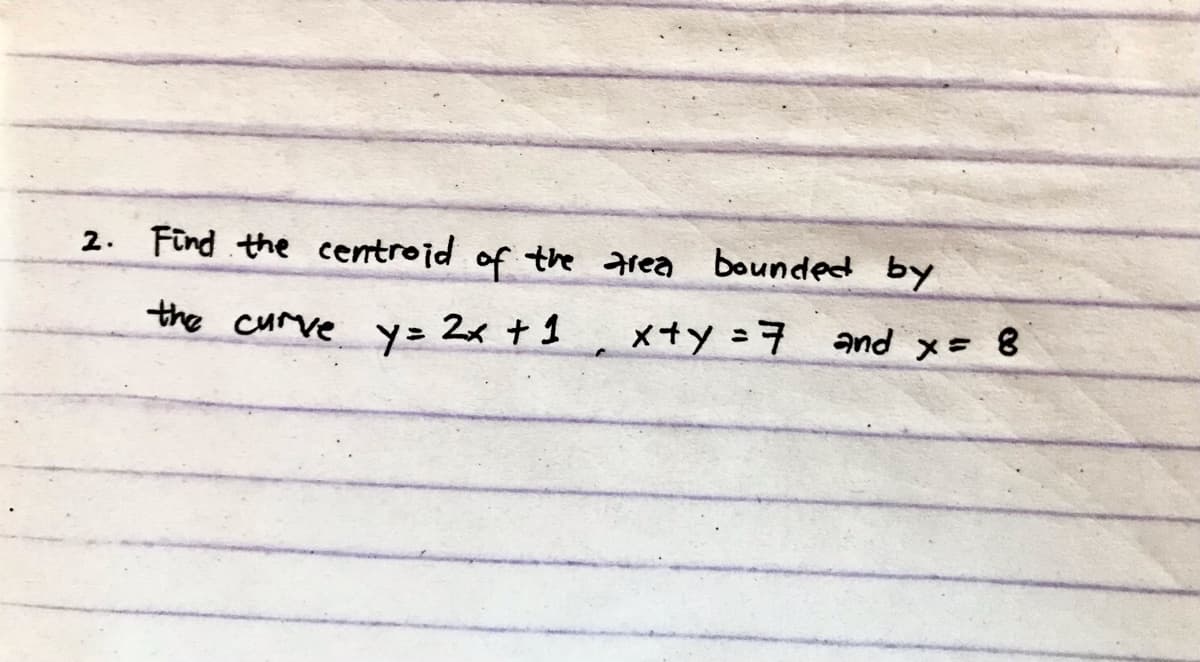 2. Find the centroid of the area bounded by
the curve y = 2x + 1 , x+y = 7 and x = 8